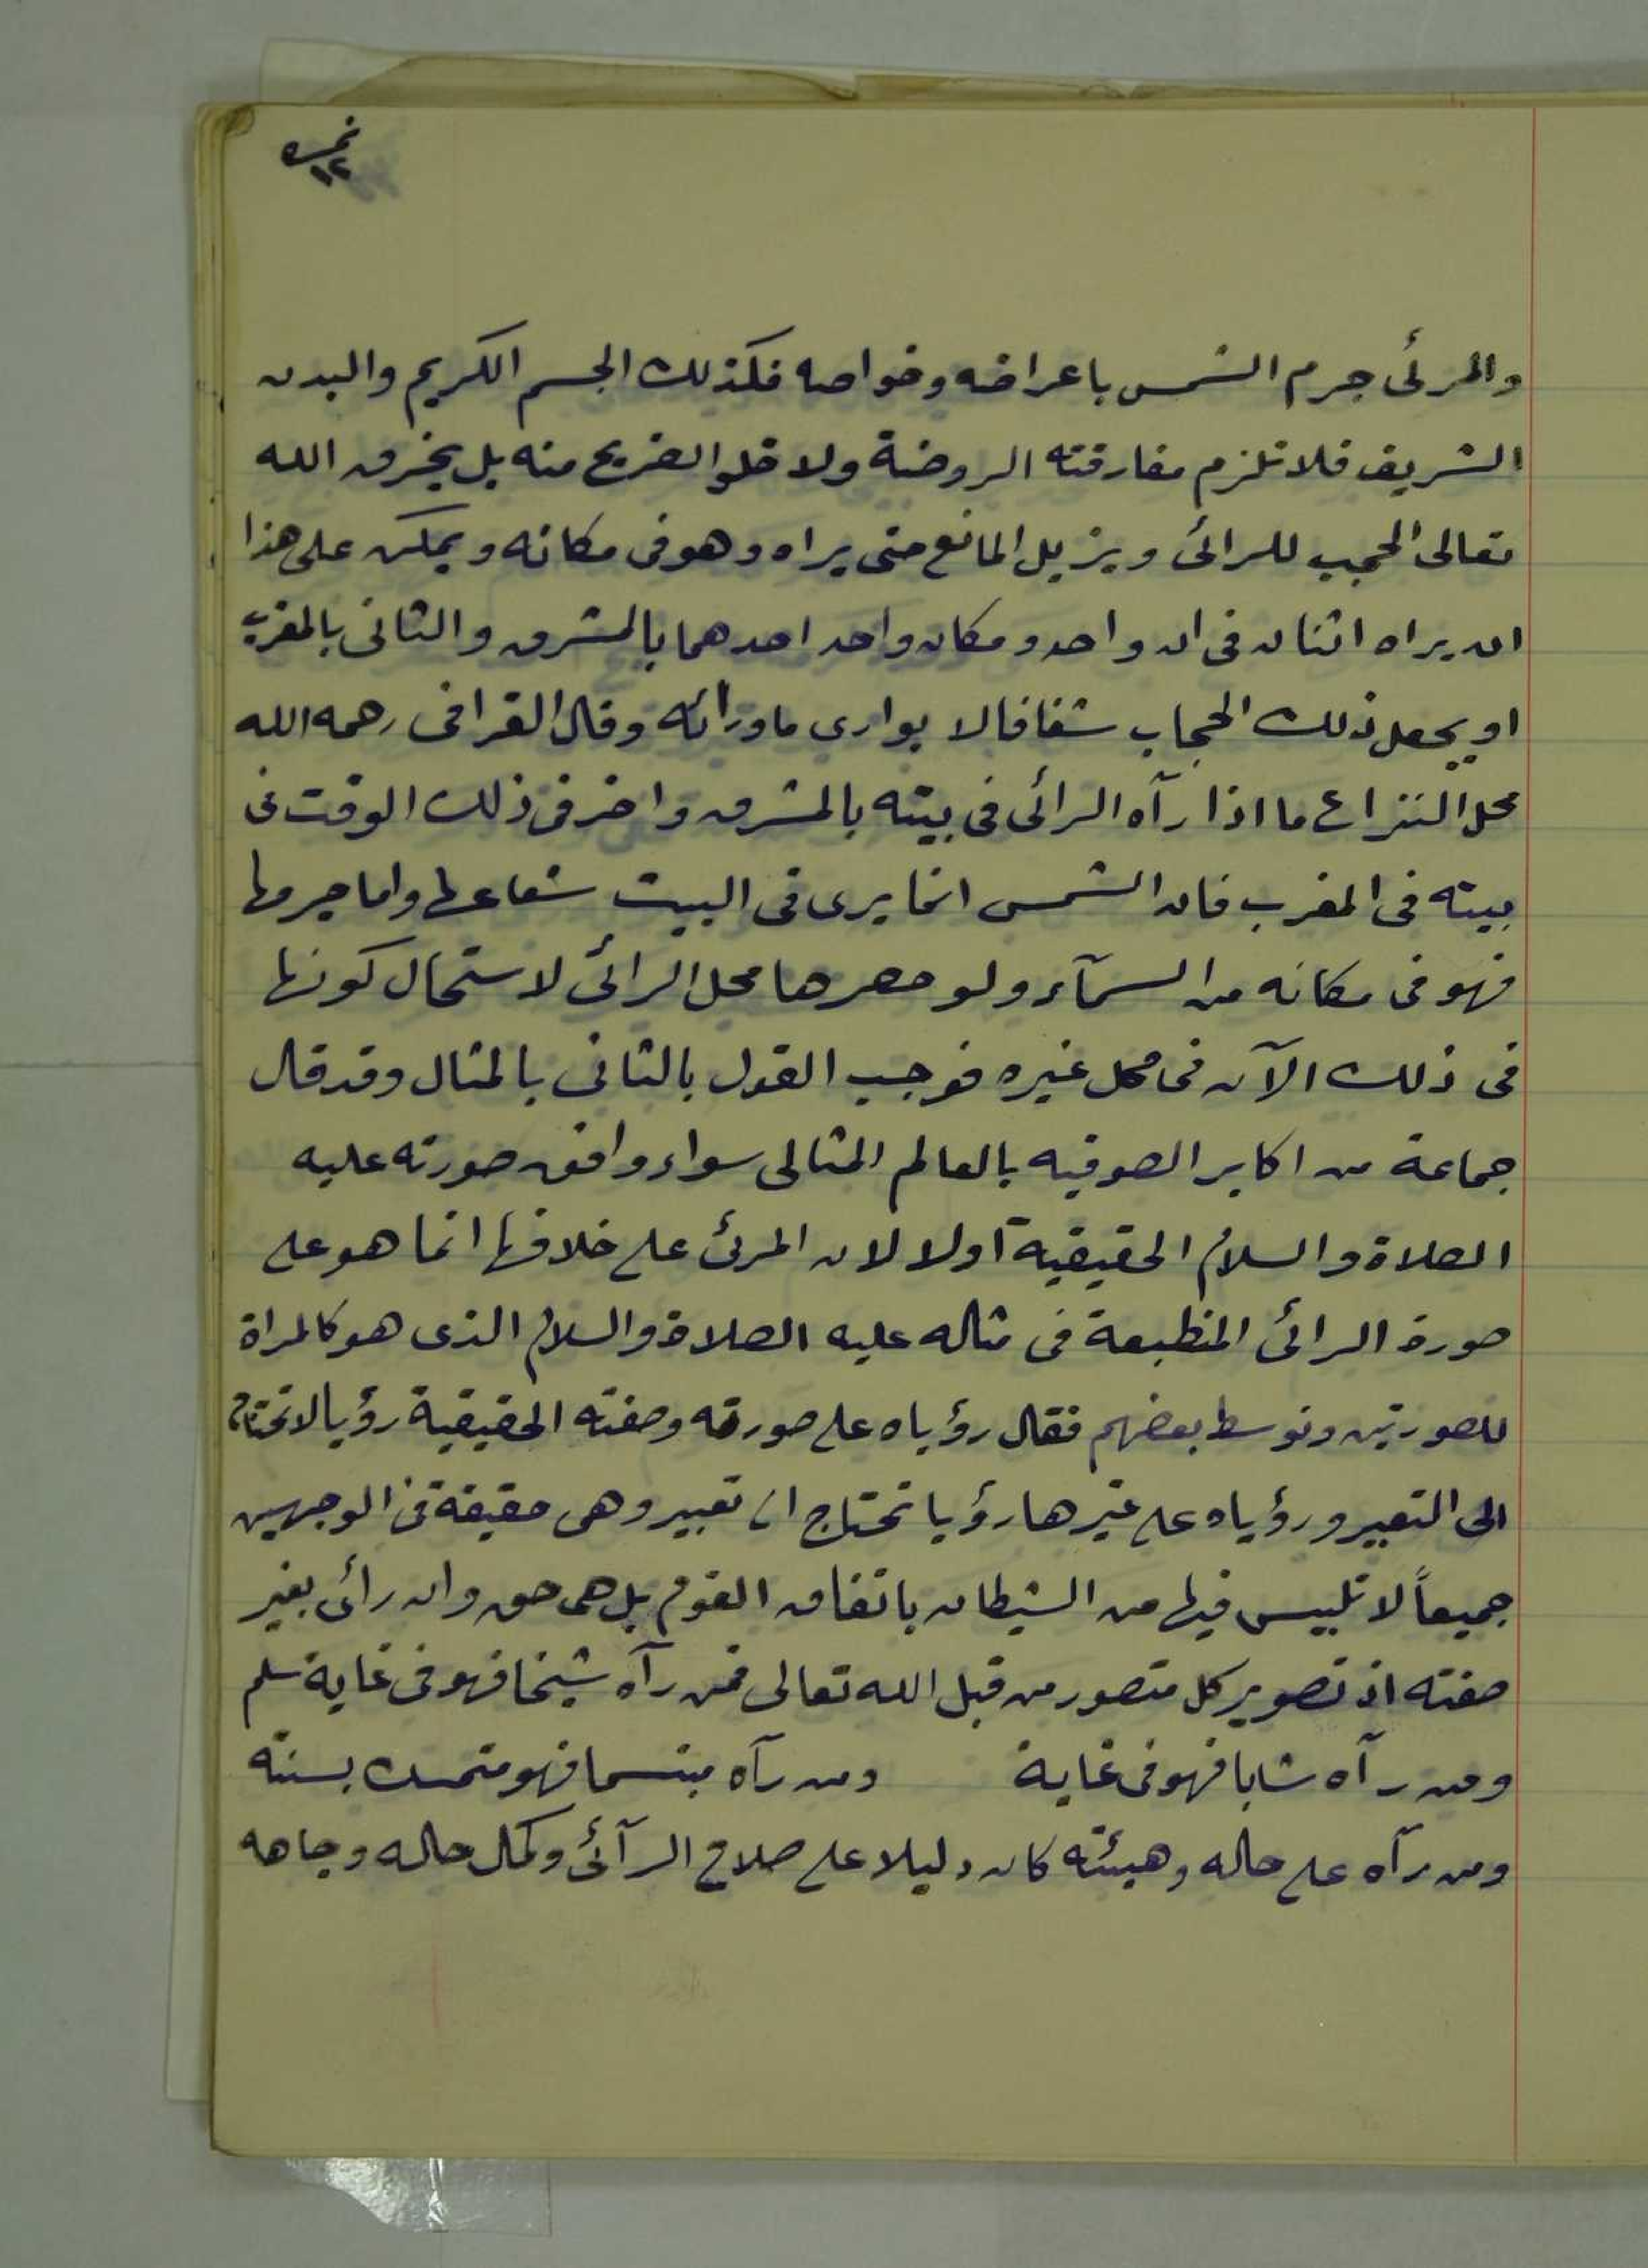 نمره
١٢
والمرئى جرم الشمس باعراضه وخواصه فكذلك الجسم الكريم والبدن
الشريف فلا تلزم مفارقته الروضة ولا خلو الضريح منه بل يخرق الله
تعالى الحجب للرائى ويزيل المانع حتى يراه وهو فى مكانه ويمكن على هذا
ان يراه اثنان فى ان واحد ومكان واحد احدهما بالمشرق والثانى بالمغرب
او يجعل ذلك الحجاب شفافا لا يوارى ماورائه وقال القرافى رحمه الله
محل النزاع ما اذا رآه الرائى فى بيته بالمشرق واخر فى ذلك الوقت فى
بيته فى المغرب فان الشمس انما يرى فى البيت شعاعها واما جرمها
فهو فى مكانه من السمآء ولو حصرها محل الرائى لاستحال كونها
فى ذلك الآن فى محل غيره فوجب القول بالثانى بالمثال وقد قال
جماعة من اكابر الصوفيه بالعالم المثالى سواء وافق صورته عليه
الصلاة والسلام الحقيقية اولا لان المرئى على خلافها انما هو على
صورة الرائى المنطبعة فى مثاله عليه الصلاة والسلام الذى هو كالمراة
للصورتين وتوسط بعضهم فقال رؤياه على صورته وصفته الحقيقية رؤيا لا تحتاج
الى التعبير ورؤياه على غيرها رؤيا تحتاج الى تعبير وهى حقيقة فى الوجهين
جميعاً لا تلبيس فيها من الشيطان باتفاق القوم بل هى حق وان رائى بغير
صفته اذ تصوير كل متصور من قبل الله تعالى فمن رآه شيخا فهو فى غاية سلم
ومن رآه شابا فهو فى غاية ومن رآه مبتسما فهو متمسك بسنته
ومن رآه على حاله وهيئته كان دليلا على صلاح الرآئى وكمال حاله وجاهه